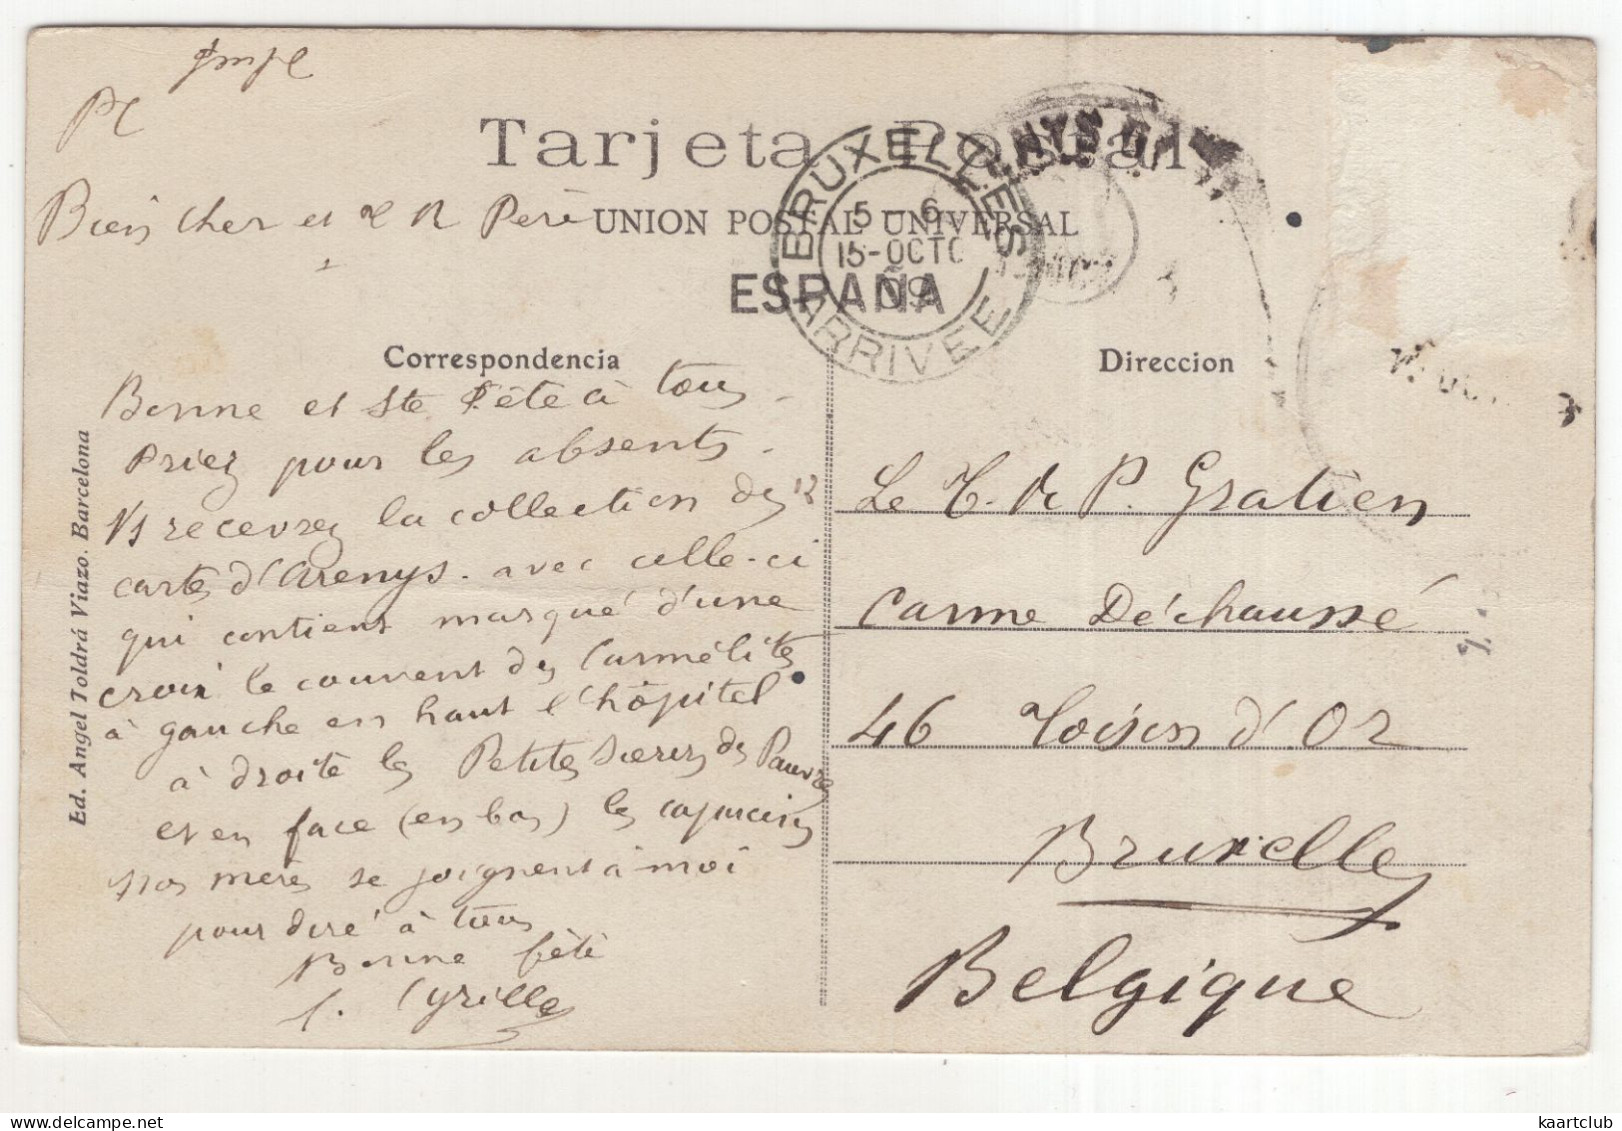 Tarjeta Postal
Bien cher et T R Père
UNION POSTAL UNIVERSAL
ESPAÑA
BRUXELLES
5-6
15-OCTO
09
ARRIVEE
Correspondencia
Bonne et Ste Fête à tous.
Priez pour les absents.
Vs recevrez la collection des 12
cartes d'Arenys. avec celle-ci
qui contient marqué d'une
croix le couvent des Carmélites
à gauche en haut l'hôpital
à droite les Petites Soeurs des Pauvres
et en face (en bas) les capucins
nos mères se joignent à moi
pour dire à tous
Bonne fête
f. Cyrille
Direccion
Le T. R P. Gratien
Carme Déchaussé
46 Toison d'Or
Bruxelles
Belgique
Ed. Angel Toldrá Viazo. Barcelona
kaartclub